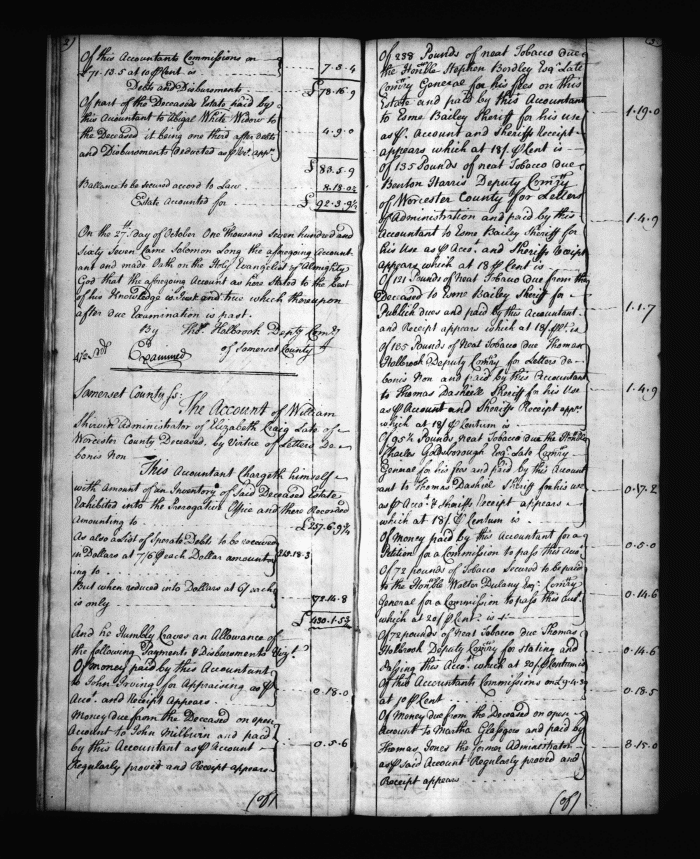 2)
Of this Accountants Commissions on
£71.13.5 at 10 ⅌ Cent is 7.3.4
Debts and Disbursements £ 78.16.9
Of part of the Deceaseds Estate paid by
this Accountant to Abigal White Widow to
the Deceased it being one third after debts 4.9.0
and Disbursments Deducted as ⅌
£ 83.5.9
Ballance to be secured accord to Law 8.18.0½
Estate accounted for £ 92.3.9½
On the 27th Day of October One Thousand Seven hundred and
Sixty Seven Came Solomon Long the aforegoing Account
ant and made Oath on the Holy Evangelist of Almighty
God that the aforegoing Account as here Stated to the best
of his Knowledge is Just and true which thereupon
after due Examination is past.
By Thos. Holbrook Depty Comry
of Somerset County
Examined
Somerset County ss:
The Account of William
Shirvin Administrator of Elizabeth Craig Late of
Worcester County Deceased, by Virtue of Letters De
bonis Non
This Accountant Chargeth himself
with Amount of an Inventory of Said Deceased Estate
Exhibited into the Prerogative Office and there Recorded
Amounting to £ 257.6.9¼
As also a List of Sperate Debts to be received
in Dollars at 7/6 each Dollar amount
ing to
But when reduced into Dollars at 6/ each
is only 172.14.8
£ 430.1.5¼
And he Humbly Craves an Allowance of
the following Payments & Disbursements Viz.
Of money paid by this Accountant
to John Irving for Appraising as ⅌
Acco. and Receipt Appears 0.18.0
Money due from the Deceased on open
Account to John Milburn and paid
by this Accountant as ⅌ Account 0.5.6
Regularly proved and Receipt appears
(Of)
(3
Of 238 Pounds of neat Tobacco due
the Honble Stephen Bordley Esqr. Late
Comry General for his fees on this
Estate and paid by this Accountant
to Esme Bailey Sheriff for his use 1.19.0
as ⅌. Account and Sheriffs Receipt
appears which at 18/. ⅌ Cent is
Of 135 Pounds of neat Tobacco due
Benton Harris Deputy Comry
of Worcester County for Letters
of Administration and paid by this 1.4.9
Accountant to Esme Bailey Sheriff for
his Use as ⅌ Acco. and Sheriffs Receipt
appears which at 18 ⅌ Cent is
Of 121 Pounds of Neat Tobacco due from the
Deceased to Esme Bailey Sheriff for
Publick dues and paid by this Accountant 1.1.7
and Receipt appears which at 18/. ⅌ Ct. is
Of 135 Pounds of Neat Tobacco due Thomas
Holbrook Deputy Comry for Letters de
bonis Non and paid by this Accountant
to Thomas Dashiell Sheriff for his Use 1.4.9
as ⅌ Account and Sheriffs Receipt appr.
which at 18/ ⅌ Centum is
Of 95½ Pounds neat Tobacco due the Honble
Charles Goldsborough Esqr. Late Comry
General for his fees and paid by this Account
ant to Thomas Dashiel Sheriff for his use 0.17.2
as ⅌ Acco. & Sheriffs Receipt appears
which at 18/. ⅌ Centum is
Of money paid by this Accountant for a
Petition for a Commission to pass this Acco. 0.5.0
Of 72 pounds of Tobacco Secured to be paid
to the Honble Walter Dulany Esqr. Comry
General for a Commission to pass this Acct. 0.14.6
which at 20/ ⅌ Cent: is
Of 72 pounds of Neat Tobacco due Thomas
Holbrook Deputy Comry for Stating and
Passing this Acco. which at 20/ ⅌ Centum is 0.14.6
Of this Accountants Commissions on £9.4.3
at 10 ⅌ Cent 0.18.5
Of Money due from the Deceased on open
Account to Martha Glasgoes and paid by
Thomas Jones the former Administrator 8.15.0
as ⅌ Said Account Regularly proved and
Receipt appears
(Of)